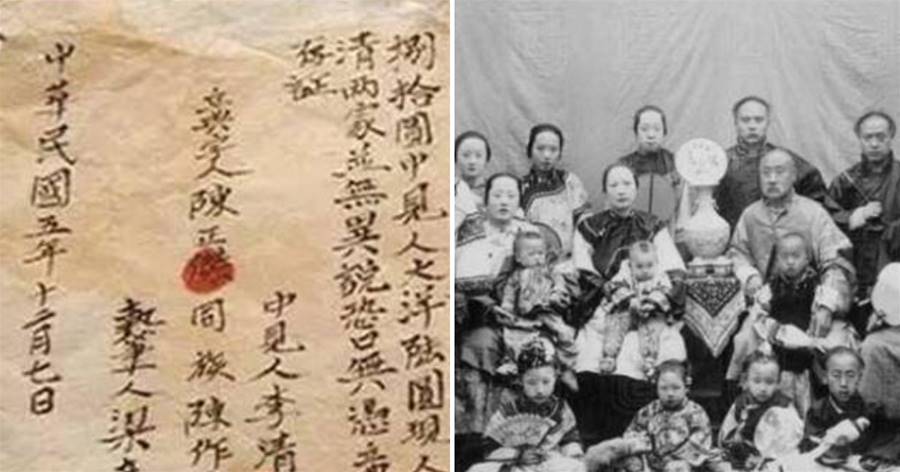 捌拾圓中見人七洋陸圓現人
清兩家並無異說恐口無憑
存証
中見人李清
人陳正 同族陳作
執筆人梁
中華民國五年十二月七日